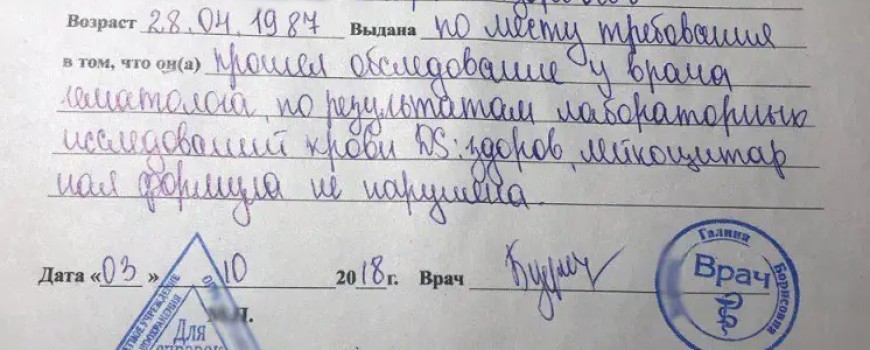 Возраст 28.04.1987 Выдана по месту требования
в том, что он(а) прошел обследование у врача
гематолога, по результатам лабораторных
исследований крови DS: здоров, лейкоцитар
ная формула не нарушена.
Дата «03» 10 2018г. Врач
М.П.
Галина
Борисовна
Врач
Для
справок